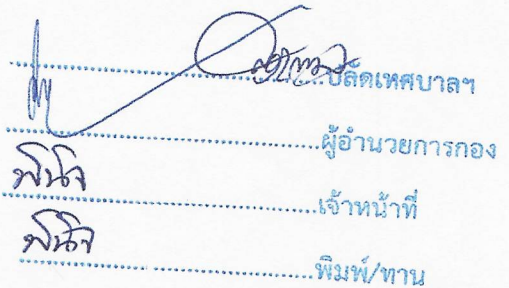 ปลัดเทศบาลฯ
ผู้อำนวยการกอง
พินิจ
เจ้าหน้าที่
พินิจ
พิมพ์/ทาน